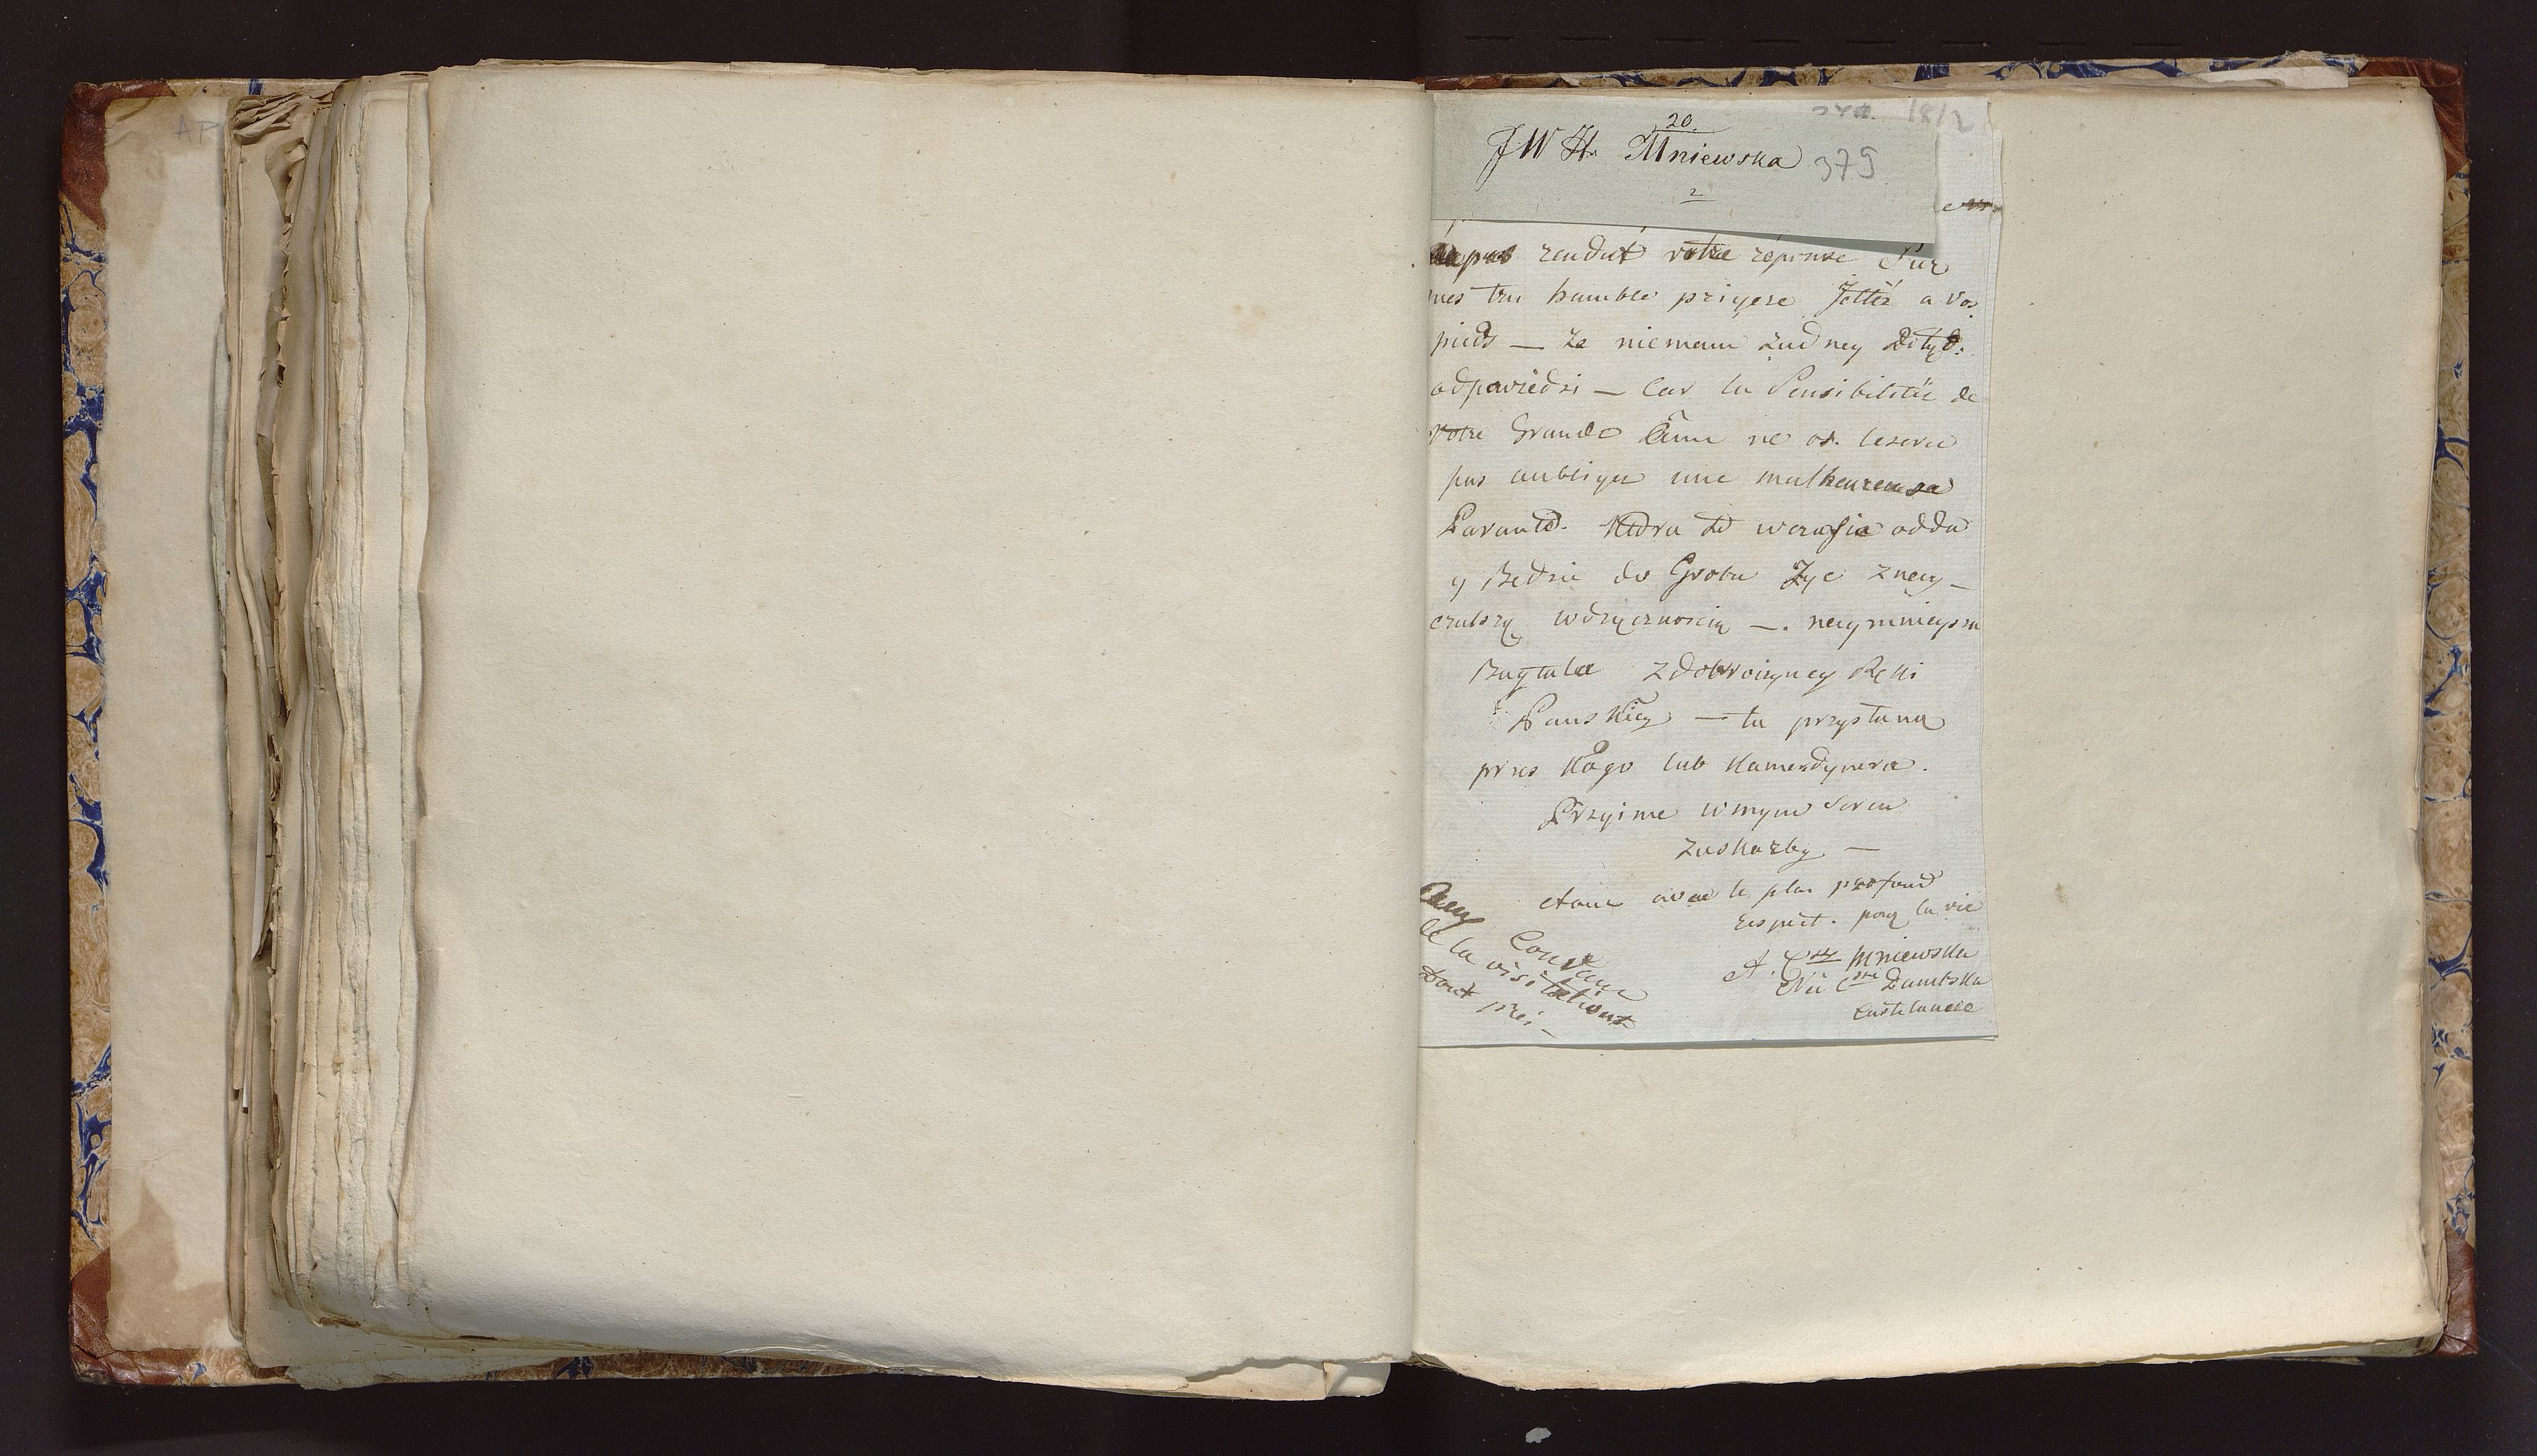 20
JW H. Mniewska 379
2
pas rendut votre réponse Sur
mes tru humble prigere Jettéz a vos
pieds — że niemam żadney Dotyd:
odpowiedzi — Car la Sensibilitée de
Votre Grande Ame ne
pas oubliger une malheureuse
Parante. Która to werafia odda
y Będzie do Grobu Żyć z nay-
czulszą wdzięcznoscią —. naymnieysza
Bagtala z dobroczyney Ręki
Panskiey — ta przysłana
przes Kogo lub Kamerdynera.
Przyime w mym Sercu
za skarby —
etant avec le plus profond
Respect. pour la vie
A. Csse Mniewska
Née Csse Dambska
Castelanese
Couvant
de la visitations
Dont